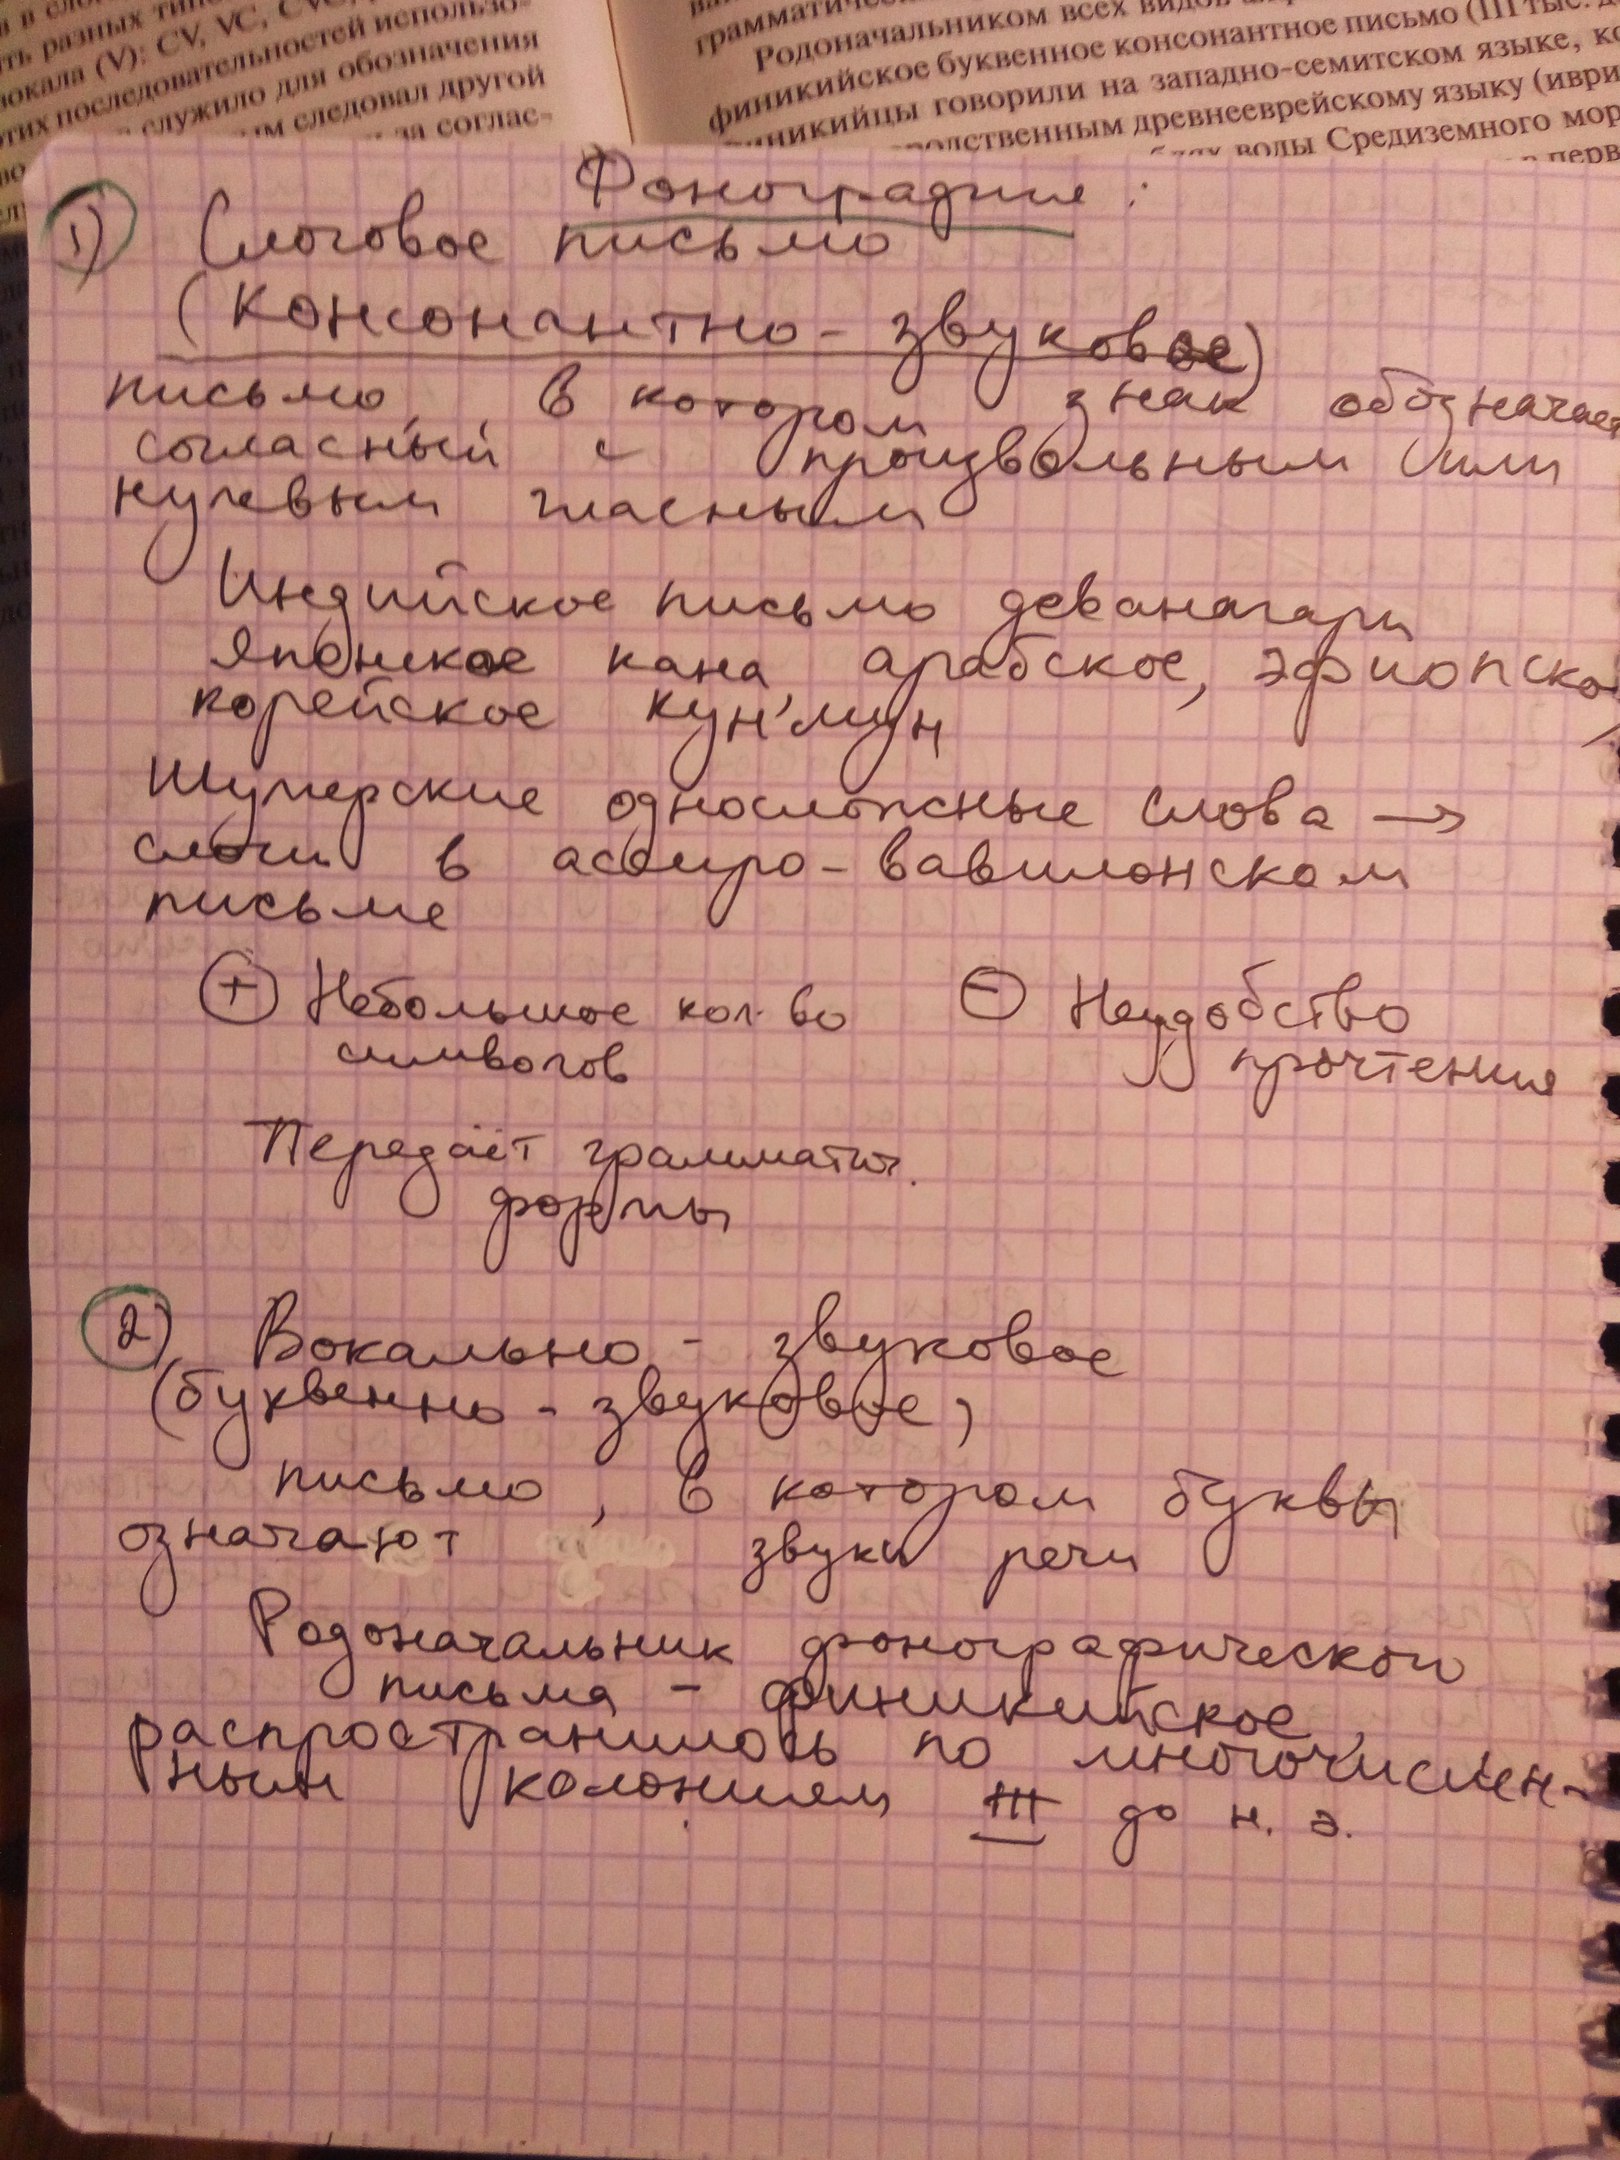 ть разных типе
вокала (V): CV, VC, CVC,
тих последовательностей использо-
служило для обозначения
ым следовал другой
за соглас-
грамматическ
Родоначальником всех видов
финикийское буквенное консонантное письмо (III тыс. д
финикийцы говорили на западно-семитском языке, ко
родственным древнееврейскому языку (иври
воды Средиземного мор
в перв
Фонография:
1) Слоговое письмо
(Консонантно-звуковое)
письмо, в котором знак обозначает
согласный с произвольным или
нулевым гласным
Индийское письмо деванагари
Японское кана, арабское, эфиопско
корейское кун'мун
Шумерские односложные слова →
слоги в ассиро-вавилонском
письме
+ Небольшое кол-во
символов
- Неудобство
прочтения
Передаёт грамматич.
формы
2) Вокально-звуковое
(буквенно-звуковое)
письмо, в котором буквы
означают звуки речи
Родоначальник фонографического
письма - финикийское,
распространилось по многочислен-
ным колониям III до н. э.